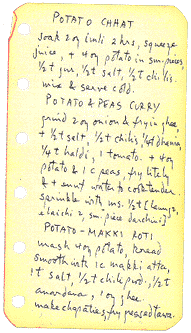 POTATO CHHAT
soak 2 oz imli 2 hrs, squeeze
juice, + 4 oz potato in sm. pieces,
½ t jus, ½ t salt, ½ t chilis.
mix & serve cold.
POTATO & PEAS CURRY
grind 2 oz onion & fry in ghee,
+ ½ t salt, ½ t chilis, ¼ t dhania
¼ t haldi, 1 tomato. + 4 oz
potato & 1 c peas, fry litely
& + enuf water to cook tender.
sprinkle with ms. ½ t [laung 3,
elaichi 2, sm. piece darchini]
POTATO-MAKKI ROTI
mash 4 oz potato, knead
smooth with 1 c makki atta,
1 t salt, ½ t chili pwd, ½ t
anardana, 1 oz ghee.
make chapaties, fry greased tava.